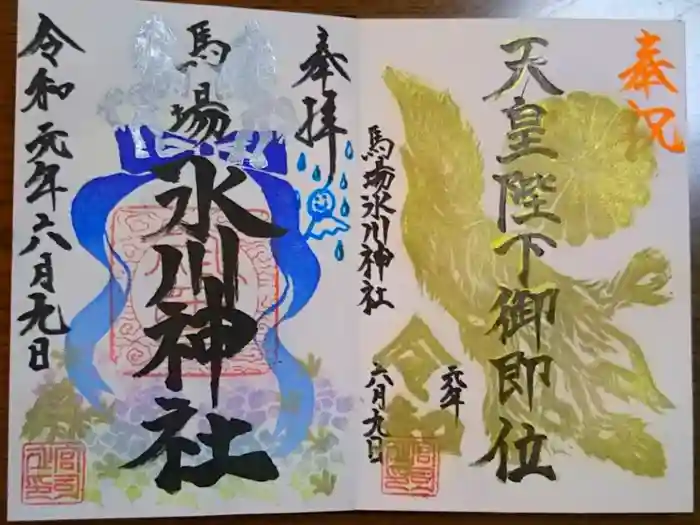 奉祝
天皇陛下御即位
馬場氷川神社
元年
六月九日
奉拝
馬場氷川神社
令和元年六月九日